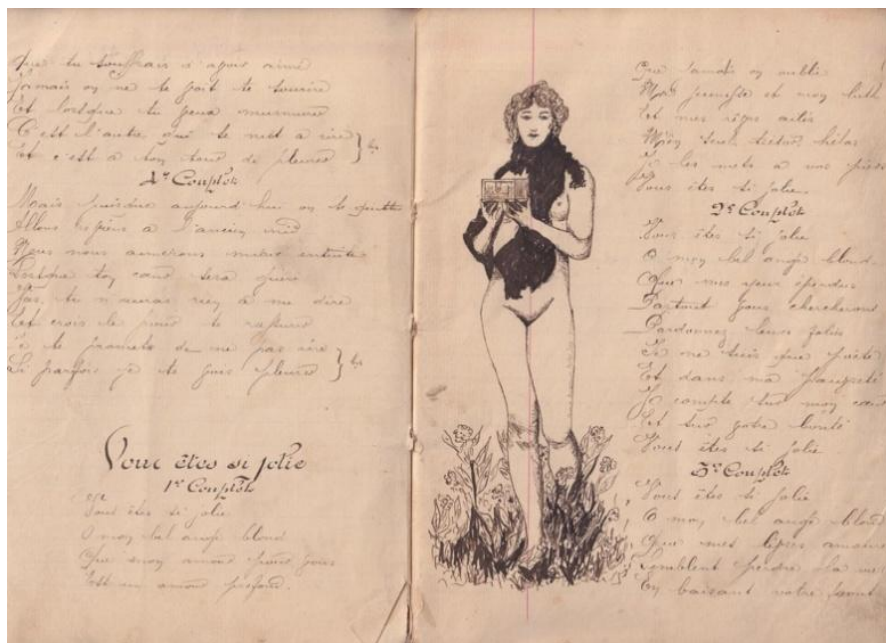 Que tu souffrais d'avoir aimé
Jamais on ne te fait te sourire
Et lorsque tu peux murmurer
C'est l'autre qui se met à rire
Et c'est à ton tour de pleurer
4e Couplet
Mais puisque aujourd'hui on te quitte
Allons reviens à l'ancien nid
Nous nous aimerons mieux ensuite
Lorsque ton cœur sera guéri
Pas, tu n'auras rien à me dire
Et crois le pour te rassurer
Je te promets de ne pas rire
Si parfois je te vois pleurer
Vous êtes si jolie
1er Couplet
Vous êtes si jolie
O mon bel ange blond
Que mon amour pour vous
Est un amour profond.
Que jamais on oublie
Ma jeunesse et mon luth
Et mes rêves ailés
Mon seul trésor hélas
Je les mets à vos pieds
Vous êtes si jolie
2e Couplet
Vous êtes si jolie
O mon bel ange blond
Que mes yeux éperdus
Partout vous chercheront
Pardonnez leurs folies
Je ne suis que poète
Et dans ma pauvreté
Je compte sur mon cœur
Et sur votre bonté
Vous êtes si jolie
3e Couplet
Vous êtes si jolie
O mon bel ange blond
Que mes lèvres
Semblent perdre la vie
En baisant votre front